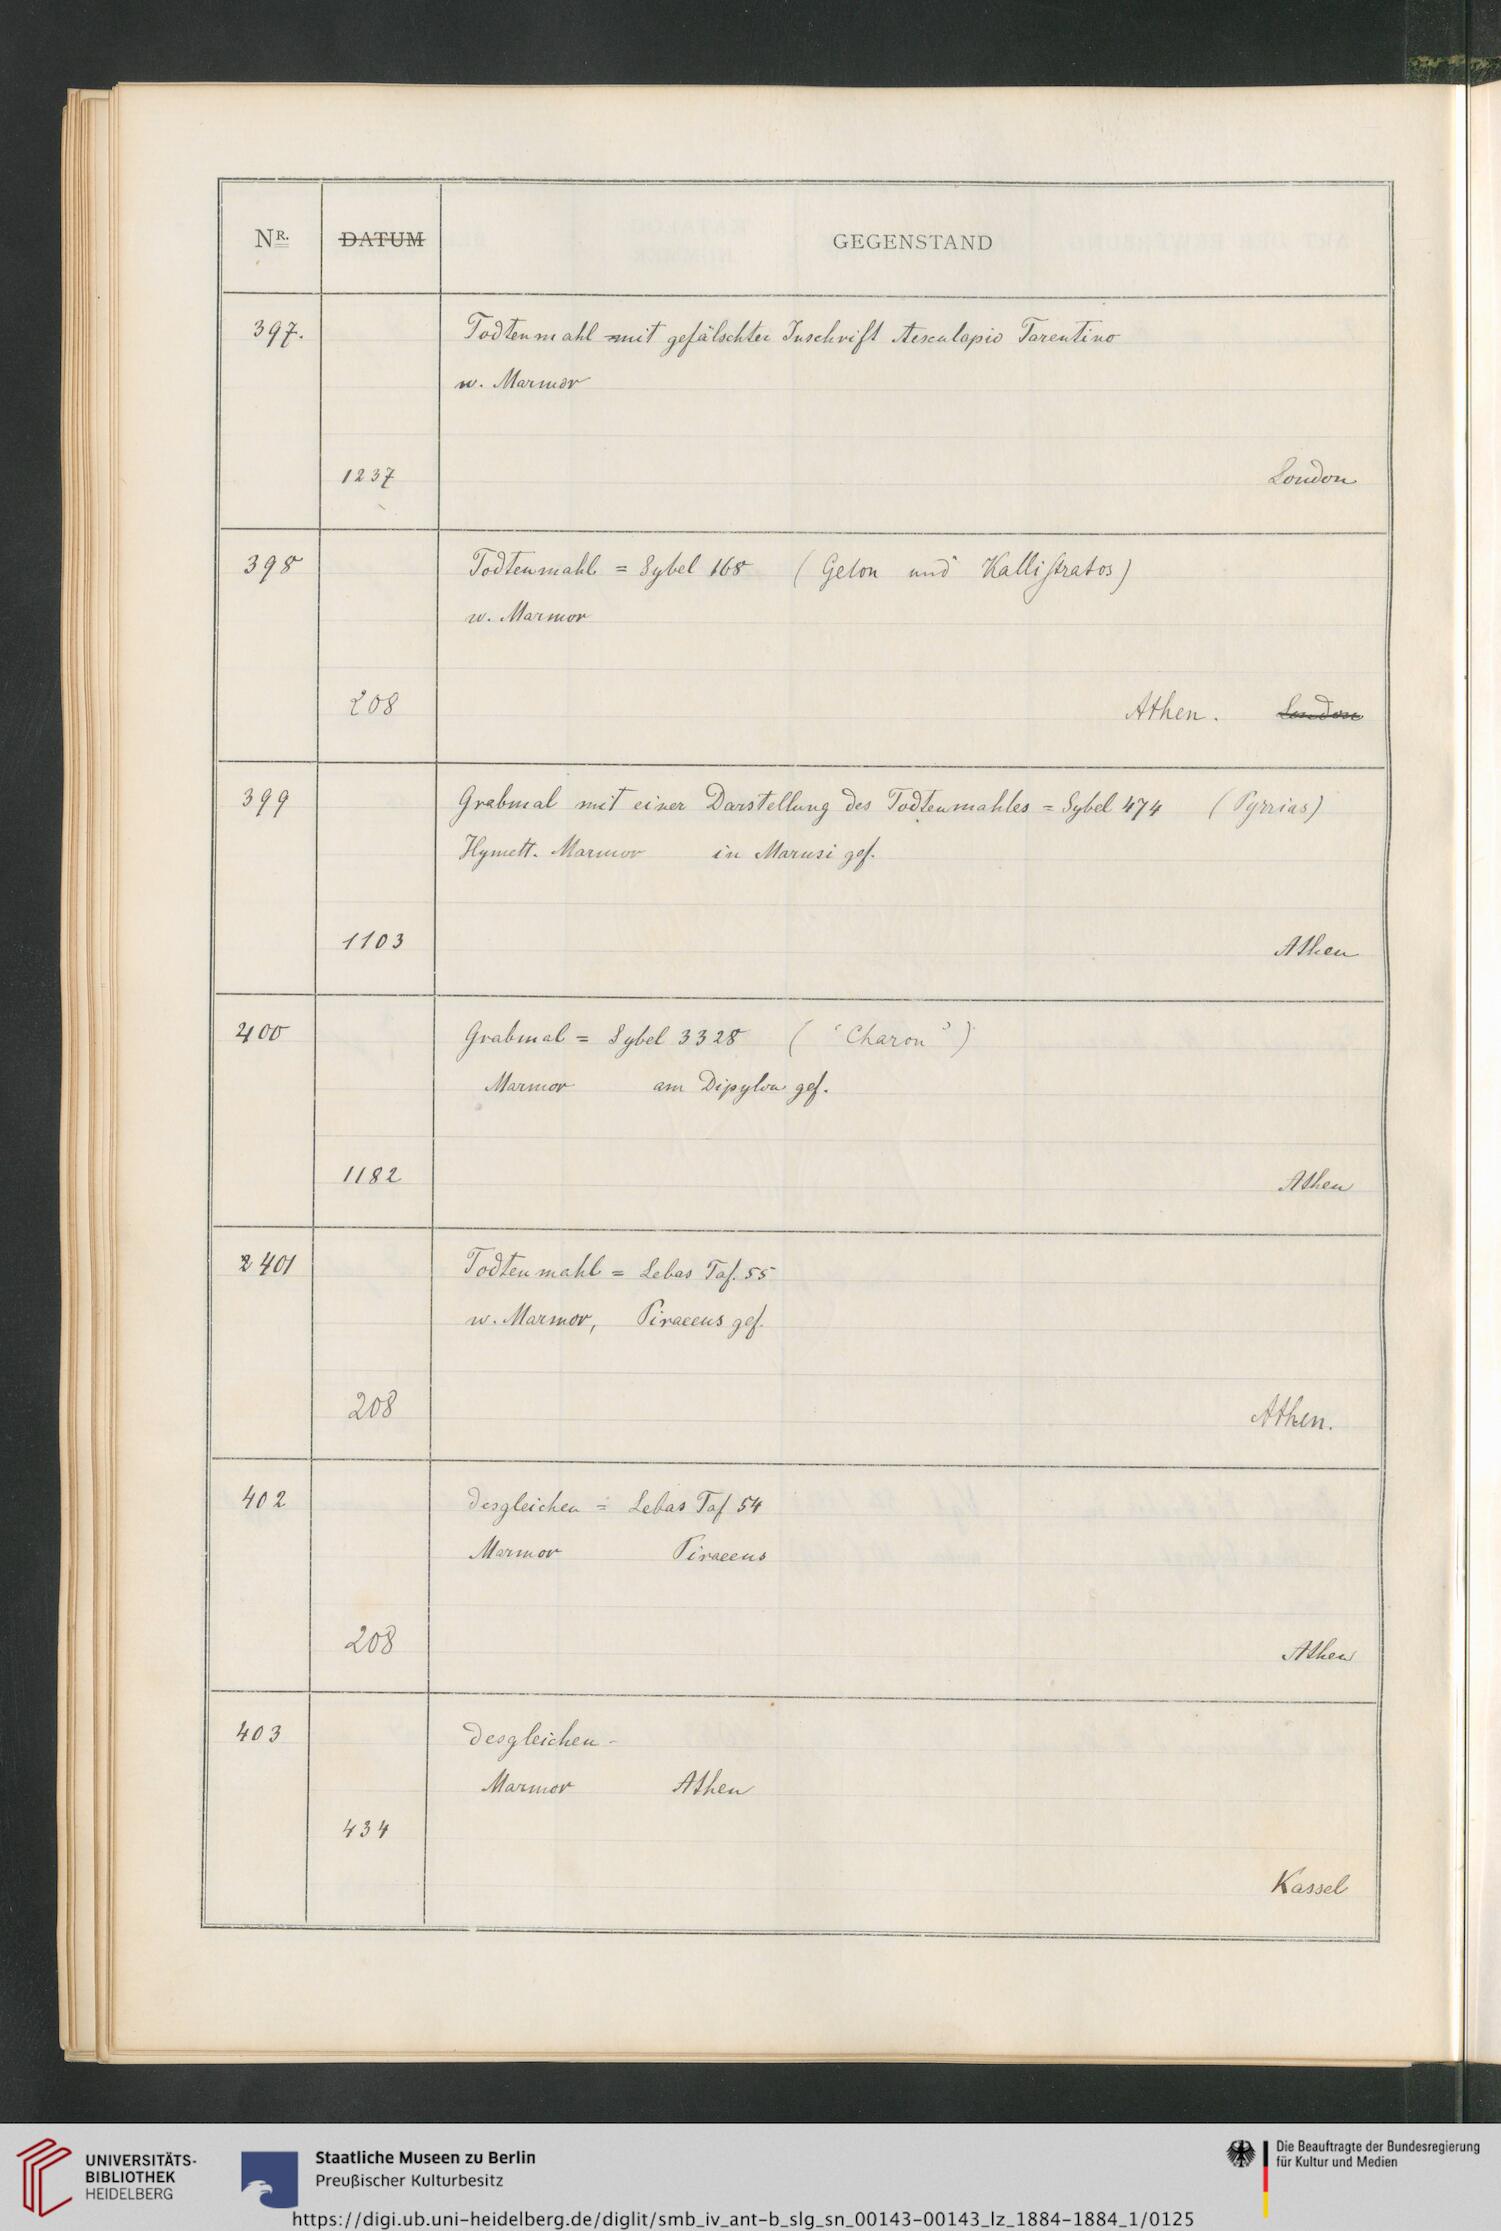 NR. DATUM GEGENSTAND
397. Todtenmahl mit gefälschter Inschrift Aesculapio Tarentino
w. Marmor
1237 London
398 Todtenmahl = Sybel 168 (Gelon und Kallistratos)
w. Marmor
208 Athen. London
399 Grabmal mit einer Darstellung des Todtenmahles = Sybel 474 (Pyrrias)
Hymett. Marmor in Marusi gef.
1103 Athen
400 Grabmal = Sybel 3328 ( 'Charon' )
Marmor am Dipylon gef.
1182 Athen
401 Todtenmahl = Lebas Taf. 55
w. Marmor, Piraeeus gef.
208 Athen.
402 desgleichen = Lebas Taf 54
Marmor Piraeeus
208 Athen
403 desgleichen -
Marmor Athen
434
Kassel
UNIVERSITÄTS-
BIBLIOTHEK
HEIDELBERG
Staatliche Museen zu Berlin
Preußischer Kulturbesitz
Die Beauftragte der Bundesregierung
für Kultur und Medien
https://digi.ub.uni-heidelberg.de/diglit/smb_iv_ant-b_slg_sn_00143-00143_lz_1884-1884_1/0125